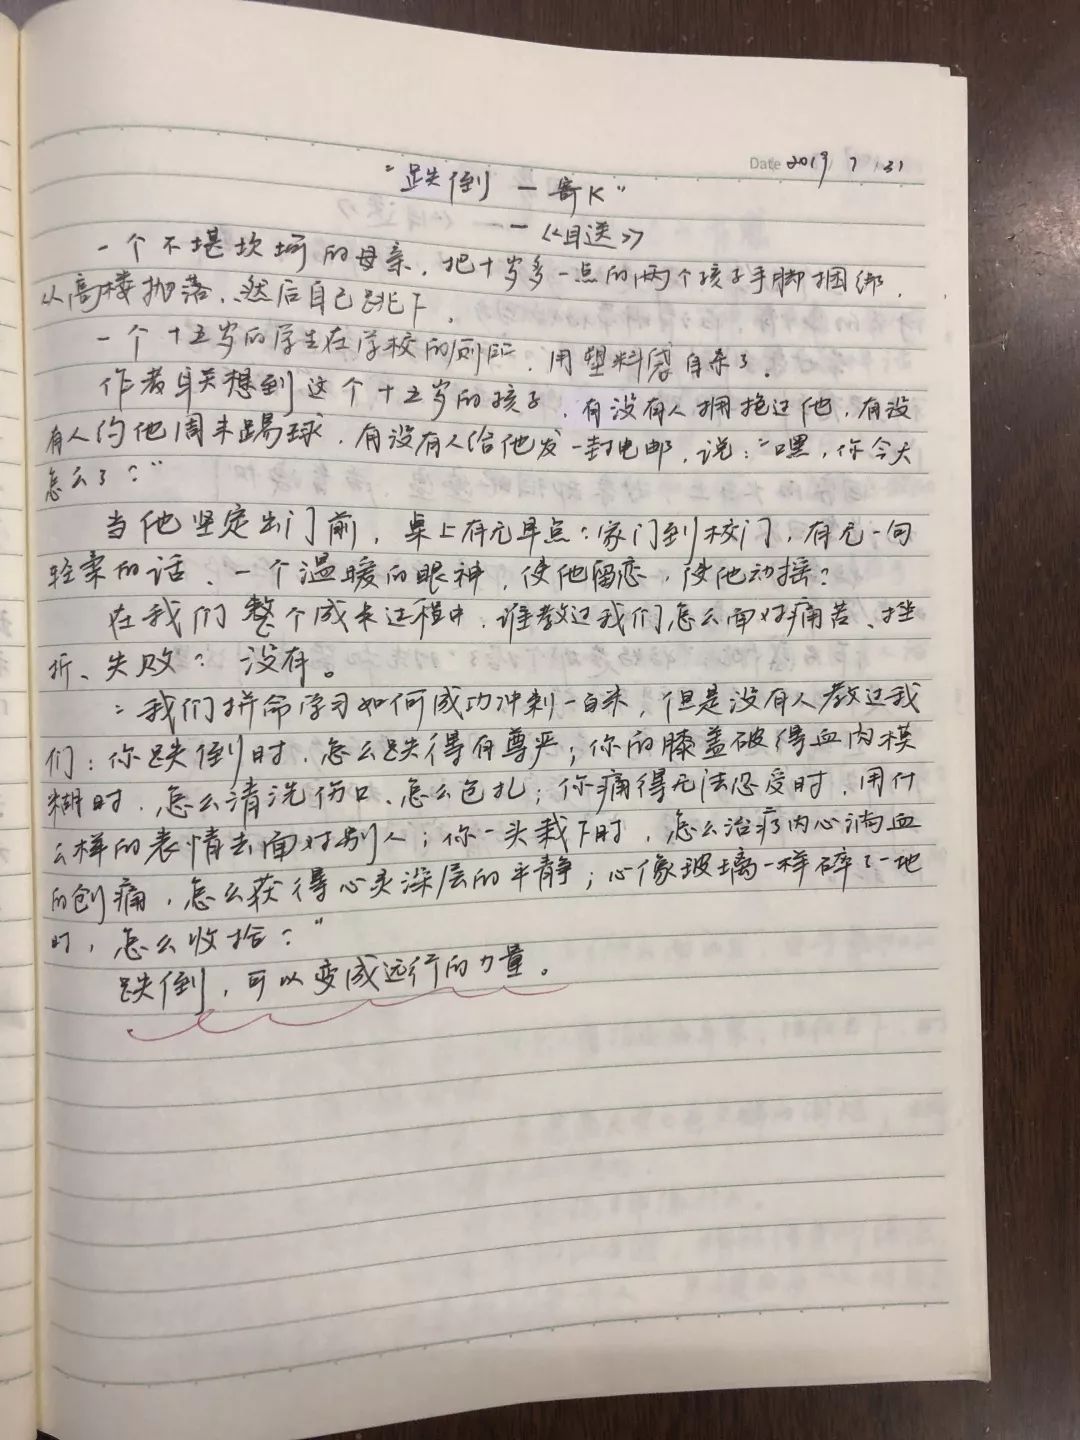 Date 2019 7 31
"跌倒 — 寄K"
——《目送》
一个不堪坎坷的母亲，把十岁多一点的两个孩子手脚捆绑，
从高楼抛落，然后自己跳下。
一个十五岁的学生在学校的厕所，用塑料袋自杀了。
作者联想到这个十五岁的孩子，有没有人拥抱过他，有没
有人约他周末踢球，有没有人给他发一封电邮，说："嘿，你今天
怎么了？"
当他坚定出门前，桌上有无早点：家门到校门，有无一句
轻柔的话、一个温暖的眼神，使他留恋，使他动摇？
在我们整个成长过程中，谁教过我们怎么面对痛苦、挫
折、失败？没有。
"我们拼命学习如何成功冲刺一百米，但是没有人教过我
们：你跌倒时，怎么跌得有尊严；你的膝盖破得血肉模
糊时，怎么清洗伤口、怎么包扎；你痛得无法忍受时，用什
么样的表情去面对别人；你一头栽下时，怎么治疗内心淌血
的创痛，怎么获得心灵深层的平静；心像玻璃一样碎了一地
时，怎么收拾？"
跌倒，可以变成远行的力量。